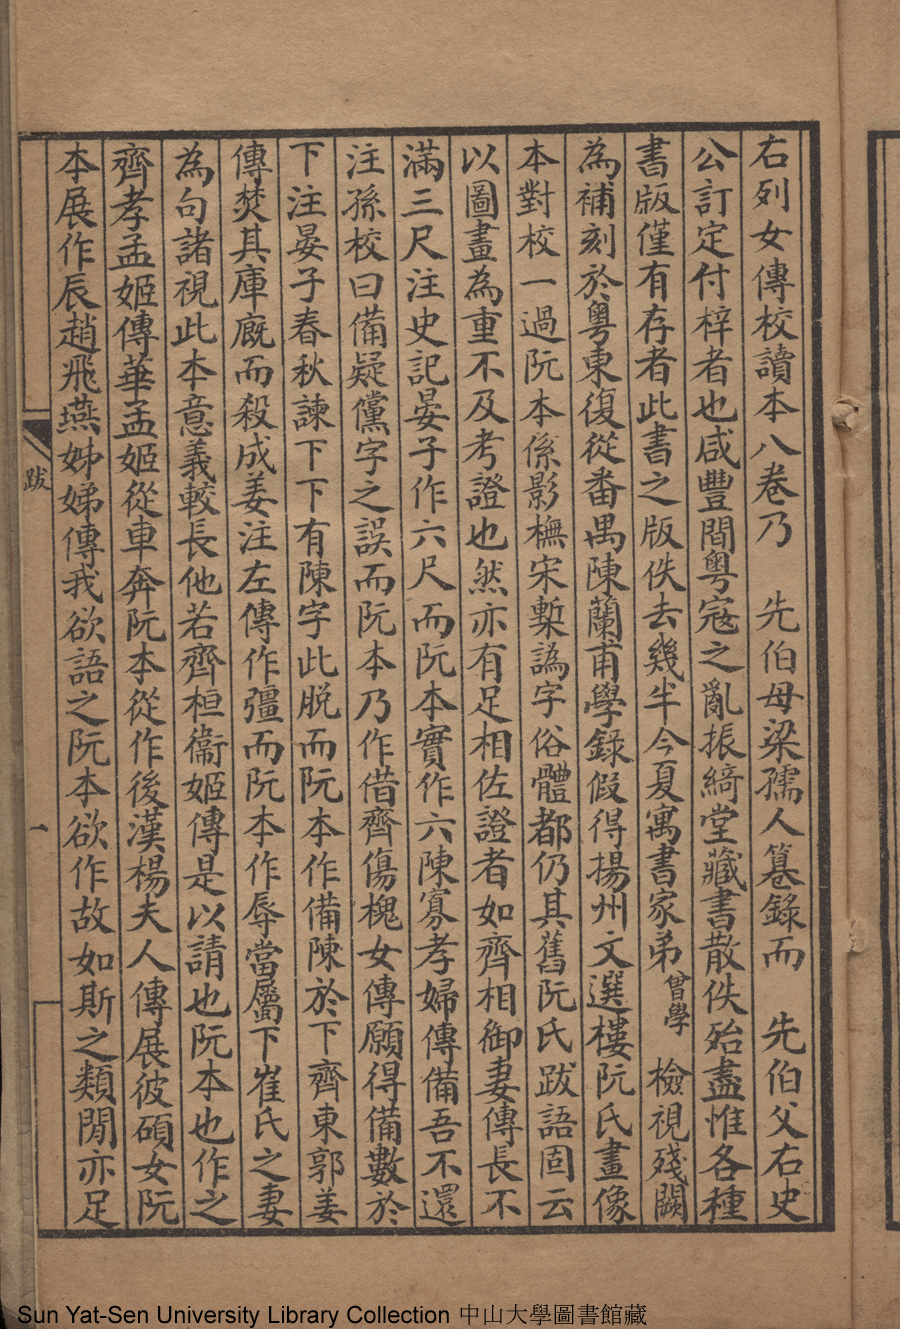 右列女傳校讀本八卷乃　先伯母梁孺人篹錄而　先伯父右史
公訂定付梓者也咸豐間粵寇之亂振綺堂藏書散佚殆盡惟各種
書版僅有存者此書之版佚去幾半今夏寓書家弟曾學檢視殘闕
為補刻於粵東復從番禺陳蘭甫學錄假得揚州文選樓阮氏畫像
本對校一過阮本係影橅宋槧譌字俗體都仍其舊阮氏跋語固云
以圖畫為重不及考證也然亦有足相佐證者如齊相御妻傳長不
滿三尺注史記晏子作六尺而阮本實作六陳寡孝婦傳備吾不還
注孫校曰備疑儻字之誤而阮本乃作借齊傷槐女傳願得備數於
下注晏子春秋諫下下有陳字此脫而阮本作備陳於下齊東郭姜
傳焚其庫廐而殺成姜注左傳作彊而阮本作辱當屬下崔氏之妻
為句諸視此本意義較長他若齊桓衞姬傳是以請也阮本也作之
齊孝孟姬傳華孟姬從車奔阮本從作後漢楊夫人傳展彼碩女阮
本展作辰趙飛燕姊娣傳我欲語之阮本欲作故如斯之類閒亦足
跋
一
Sun Yat-Sen University Library Collection 中山大學圖書館藏